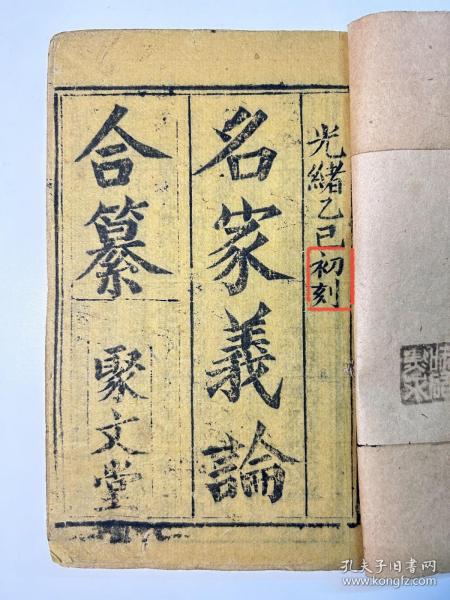 光緒乙巳初刻
名家義論
合纂
聚文堂
孔夫子旧书网
www.kongfz.com